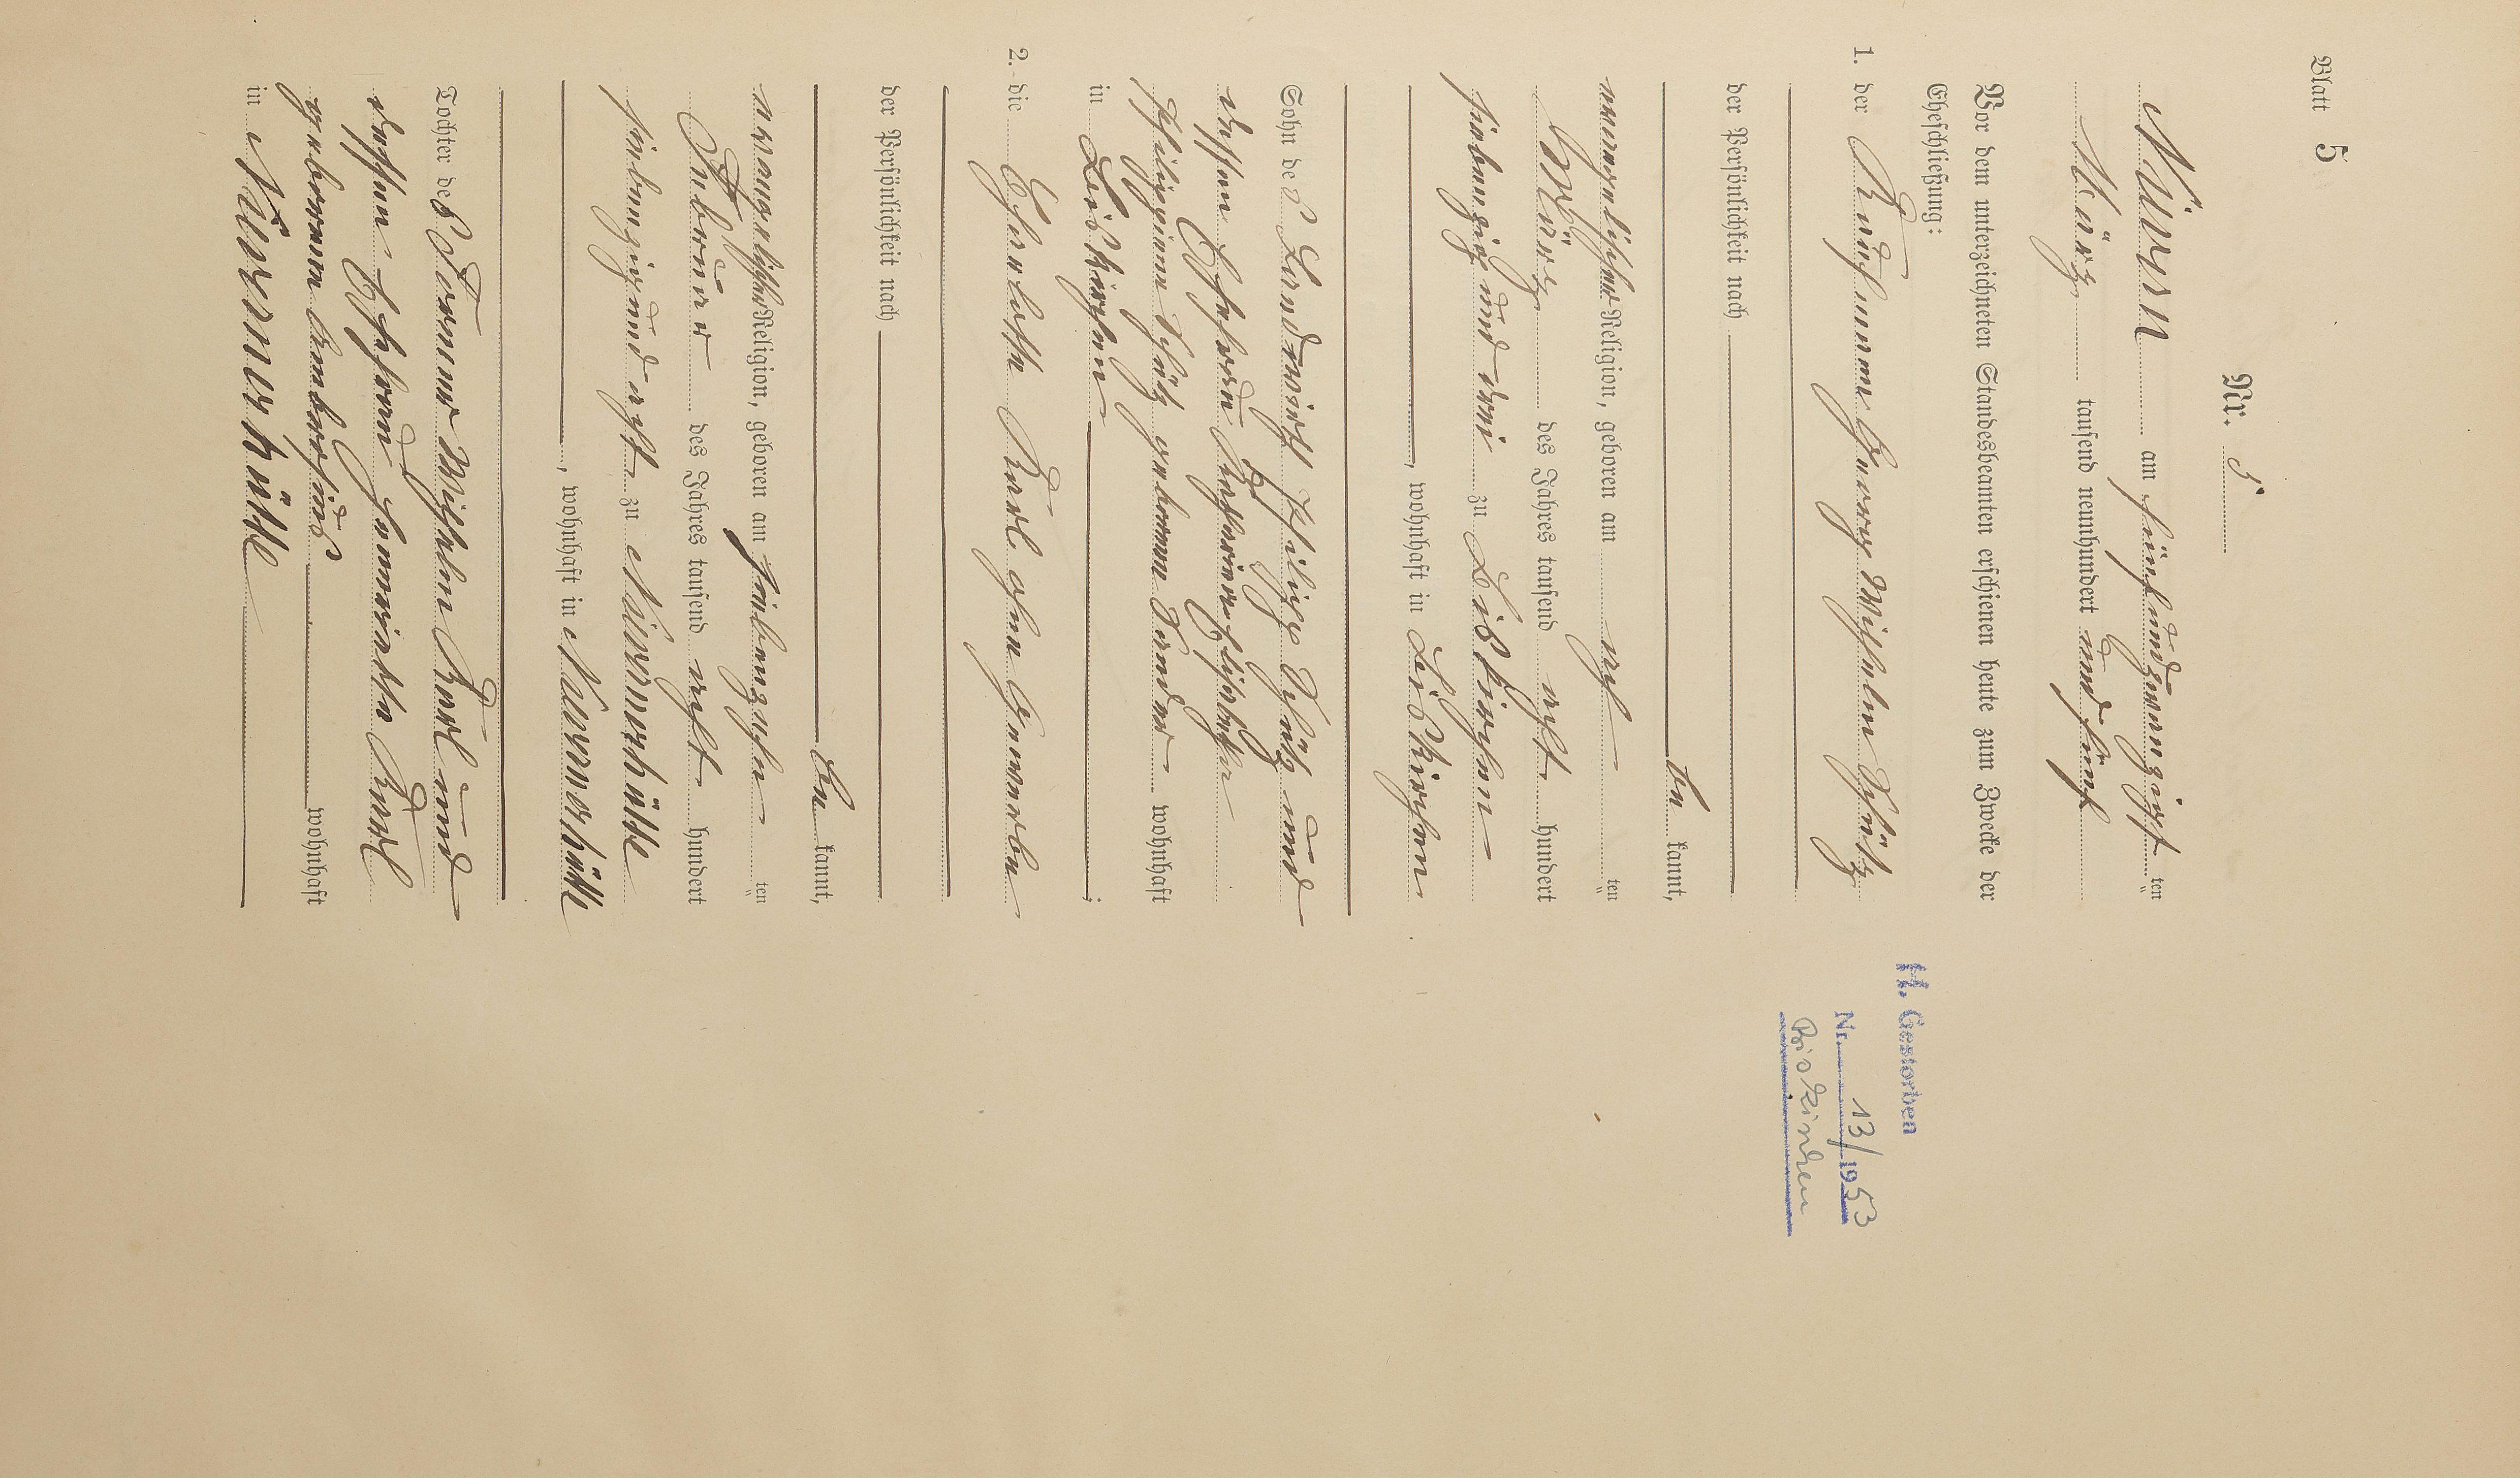 Blatt 5
Nr. 5
Nauborn am fünfundzwanzigsten
März tausend neunhundert und fünf
Vor dem unterzeichneten Standesbeamten erschienen heute zum Zwecke der
Eheschließung:
1. der Kaufmann Georg Wilhelm Schütz
der Persönlichkeit nach
be kannt,
evangelischer Religion, geboren am ten
März des Jahres tausend acht hundert
siebenzig und drei zu Biskirchen
, wohnhaft in Biskirchen
Sohn des Landwirth Philipp Schütz und
dessen Ehefrau Katharine Elisabethe
Philippine Schütz geborene wohnhaft
in Biskirchen ;
2. die Karl ohne Gewerbe
der Persönlichkeit nach
be kannt,
evangelischer Religion, geboren am siebenzehn ten
Februar des Jahres tausend acht hundert
siebenzig und acht zu
, wohnhaft in
Tochter des Wilhelm Karl und
dessen Ehefrau Henriette Karl
geborenen wohnhaft
in
H. Gestorben
Nr. 13/1953
Biskirchen